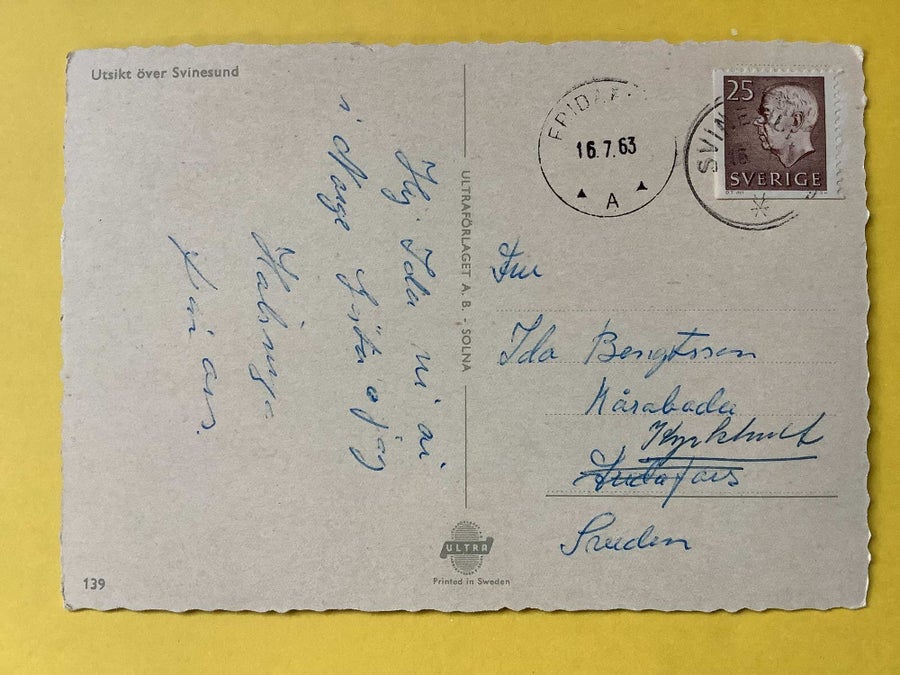 Utsikt över Svinesund
Hej Ida ni äi
i Norge Gösta o jag
Hälsninga
från oss.
ULTRAFÖRLAGET A. B. - SOLNA
FRIDAF
16.7.63
A
SVINESUND
16
25
SVERIGE
Fru
Ida Bengtsson
Nårabada
Kyrkhult
Fridafors
Sweden
ULTRA
Printed in Sweden
139